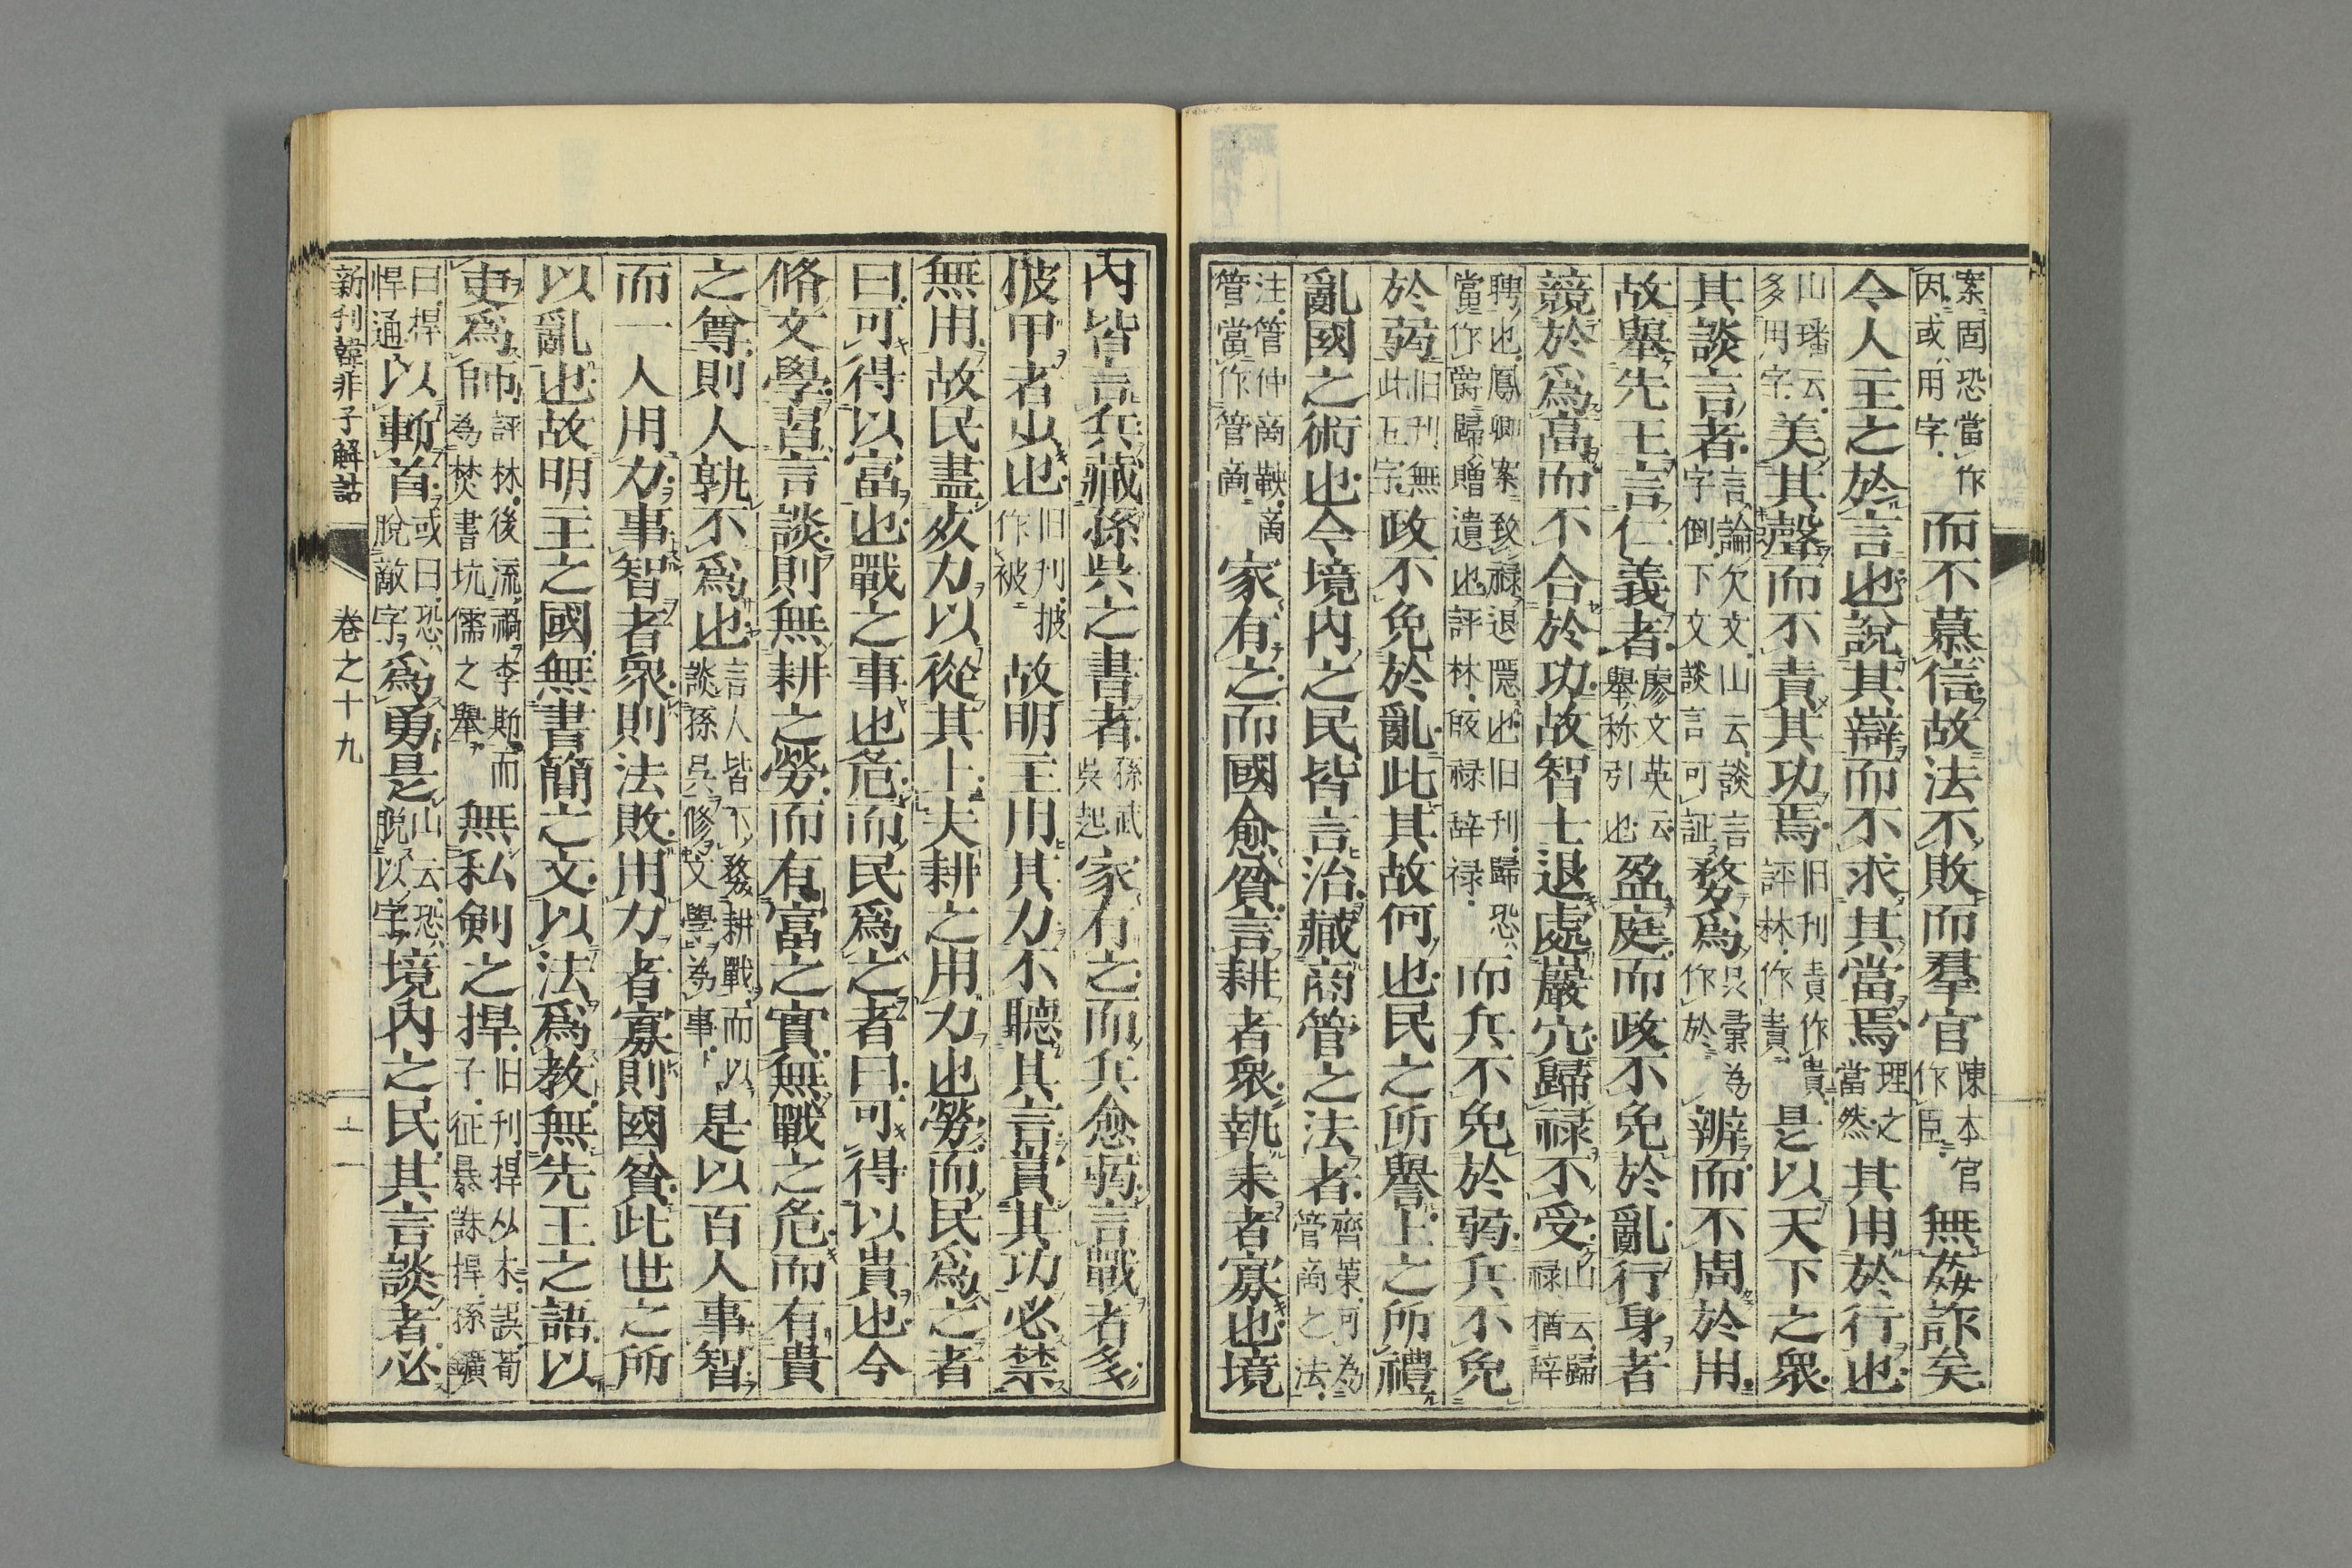 案固恐當作因或用字而不慕信故法不敗而羣官陳本官作臣無姦詐矣
今人主之於言也說其辯而不求其當焉理文當然其用於行也
山璠云多用字美其聲而不責其功焉旧刊責作貴評林作責是以天下之衆
其談言者言論欠文山云談言字倒下文談言可証務爲只彙為作於辨而不周於用
故舉先王言仁義者廖文英云舉称引也盈庭而政不免於亂行身者
競於爲高而不合於功故智士退處巖穴歸禄不受山云歸禄猶辞
聘也鳳卿案致禄退隠也旧刊歸恐當作䬯歸贈遺也評林作䬯禄辞禄而兵不免於弱兵不免
於弱旧刊無此五字政不免於亂此其故何也民之所譽上之所禮
亂國之術也今境內之民皆言治藏商管之法者齊葉可為管商之法
注管仲商鞅商管當作管商家有之而國愈貧言耕者衆執耒者寡也境
內皆言兵藏孫吳之書者孫武吳起家有之而兵愈弱言戰者多
披甲者少也旧刊披作被故明主用其力不聽其言賞其功必禁
無用故民盡死力以從其上夫耕之用力也勞而民爲之者
曰可得以富也戰之事也危而民爲之者曰可得以貴也今
脩文學習言談則無耕之勞而有富之實無戰之危而有貴
之尊則人孰不爲也言人皆不務耕戰而以談孫吳修文學為事是以百人事智
而一人用力事智者衆則法敗用力者寡則國貧此世之所
以亂也故明主之國無書簡之文以法爲教無先王之語以
吏爲師評林後流禍李斯而為焚書坑儒之舉無私劍之捍旧刊捍从木誤荀子征暴誅捍孫曠
曰捍悍通以斬首或曰恐脫敵字爲勇是山云恐脫以字境內之民其言談者必
新刊韓非子解詁　卷之十九　十一